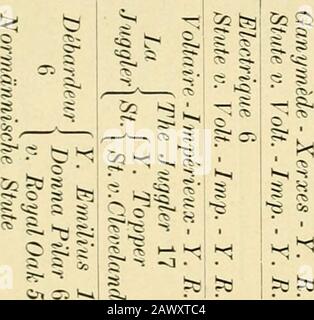 Ganymède - Xerxes - Y. R.
Stute v. Volt. - Imp. - Y. R.
Electrique 6
Stute v. Volt. - Imp. - Y. R.
Voltaire - Impérieux - Y. R.
La Juggler { The Juggler 17
St. { Y. Topper
St. v. Cleveland
Débardeur 6 { Y. Emilius 1
Donna Pilar 6
v. Royal Oak 5
Normännische Stute
2AWXTC4